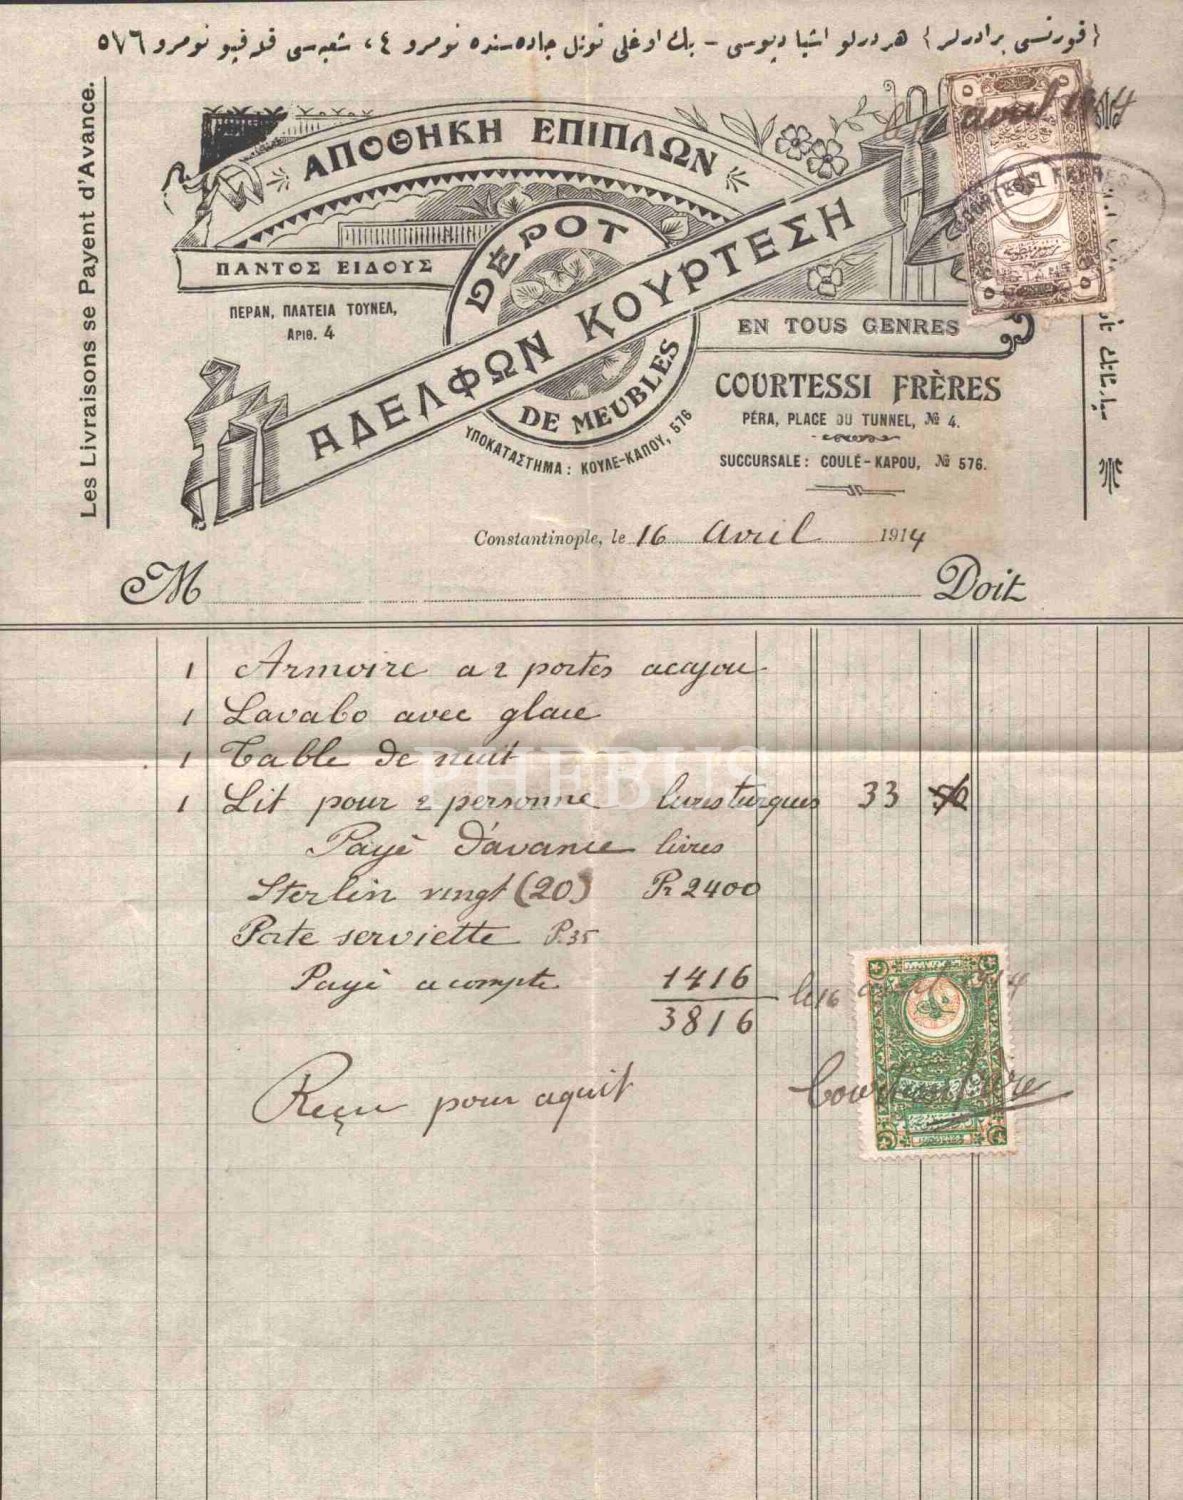 ﴿قورتسى برادرلر﴾ هر درلو اشيا ديوسى - بك اوغلى تونل جاده سنده نومرو ٤، شعبه سى قله قپو نومرو ٥٧٦
Les Livraisons se Payent d'Avance.
ΑΠΟΘΗΚΗ ΕΠΙΠΛΩΝ
ΠΑΝΤΟΣ ΕΙΔΟΥΣ
ΑΔΕΛΦΩΝ ΚΟΥΡΤΕΣΗ
DÉPOT
DE MEUBLES
EN TOUS GENRES
ΠΕΡΑΝ, ΠΛΑΤΕΙΑ ΤΟΥΝΕΛ,
ΑΡΙΘ. 4
ΥΠΟΚΑΤΑΣΤΗΜΑ: ΚΟΥΛΕ-ΚΑΠΟΥ, 576
COURTESSI FRÈRES
PÉRA, PLACE DU TUNNEL, № 4.
SUCCURSALE: COULÉ-KAPOU, № 576.
avril 1914
Constantinople, le 16 Avril 1914
M Doit
1 Armoire a 2 portes acajou
1 Lavabo avec glace
1 Table de nuit
1 Lit pour 2 personne livres turques 33 50
Payè d'avance livres
Sterlin vingt (20) Pr 2400
Porte serviette P. 35
Payè acompte 1416 le 16 avril 1914
3816
Reçu pour aquit
PHEBUS